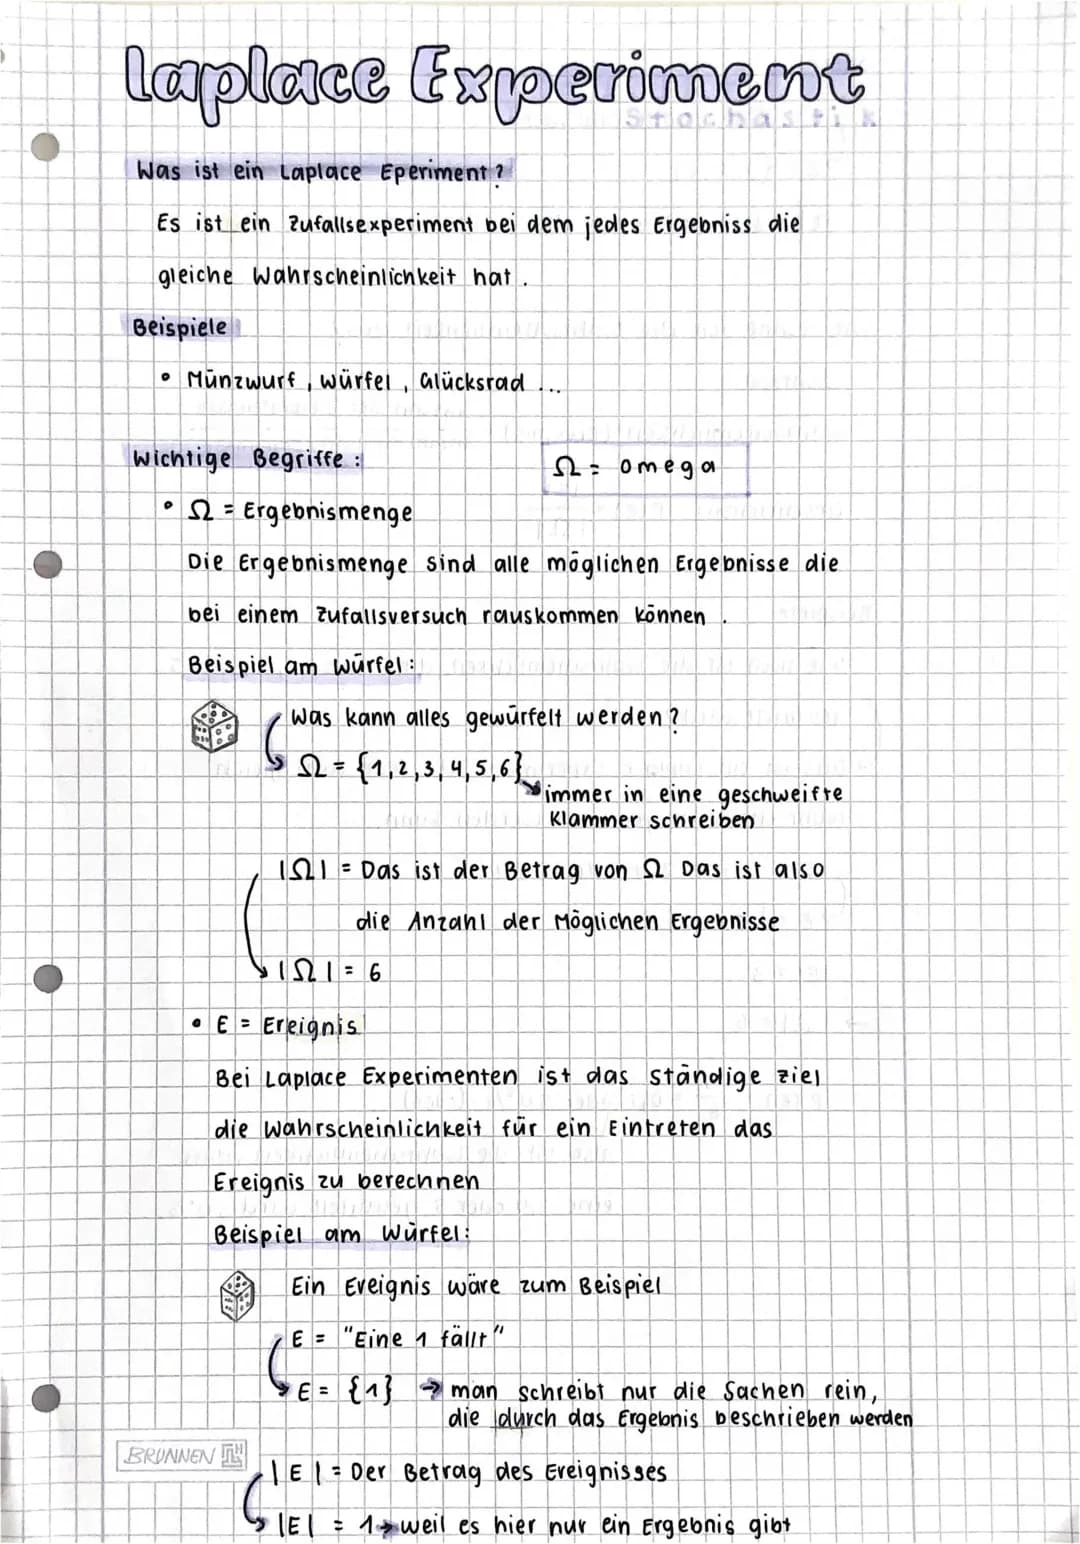 Laplace Experiment
Stochastik
Was ist ein Laplace Eperiment?
Es ist ein Zufallsexperiment bei dem jedes Ergebniss die
gleiche Wahrscheinlichkeit hat.
Beispiele
• Münzwurf, Würfel, Glücksrad ...
Wichtige Begriffe:
Ω = omega
• Ω = Ergebnismenge
Die Ergebnismenge sind alle möglichen Ergebnisse die
bei einem Zufallsversuch rauskommen können.
Beispiel am Würfel:
Was kann alles gewürfelt werden?
Ω = {1,2,3,4,5,6}
immer in eine geschweifte
Klammer schreiben
|Ω| = Das ist der Betrag von Ω Das ist also
die Anzahl der Möglichen Ergebnisse
|Ω| = 6
• E = Ereignis
Bei Laplace Experimenten ist das ständige Ziel
die Wahrscheinlichkeit für ein Eintreten das
Ereignis zu berechnen
Beispiel am Würfel:
Ein Ereignis wäre zum Beispiel
E = "Eine 1 fällt"
E = {1} → man schreibt nur die Sachen rein,
die durch das Ergebnis beschrieben werden
BRUNNEN
|E| = Der Betrag des Ereignisses
|E| = 1 → weil es hier nur ein Ergebnis gibt